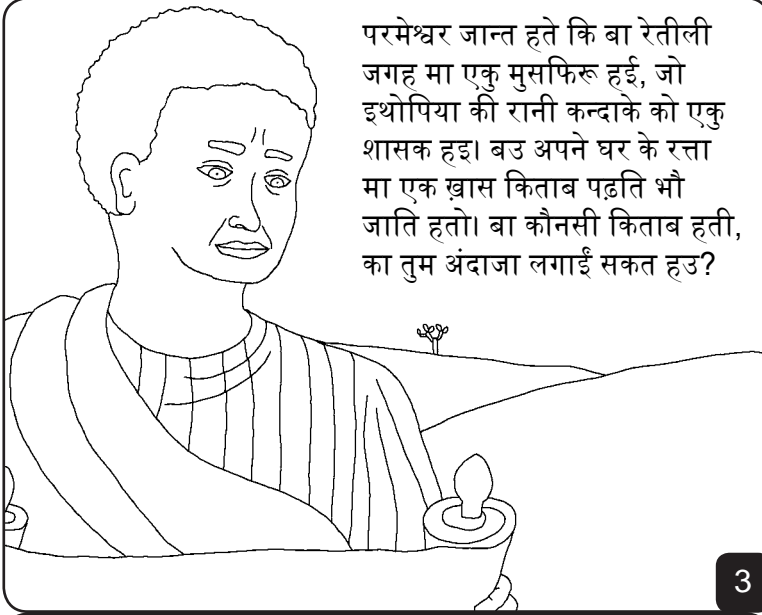 परमेश्वर जान्त हते कि बा रेतीली
जगह मा एकु मुसफिरू हई, जो
इथोपिया की रानी कन्दाके को एकु
शासक हइ। बउ अपने घर के रत्ता
मा एक ख़ास किताब पढ़ति भौ
जाति हतो। बा कौनसी किताब हती,
का तुम अंदाजा लगाईं सकत हउ?
3